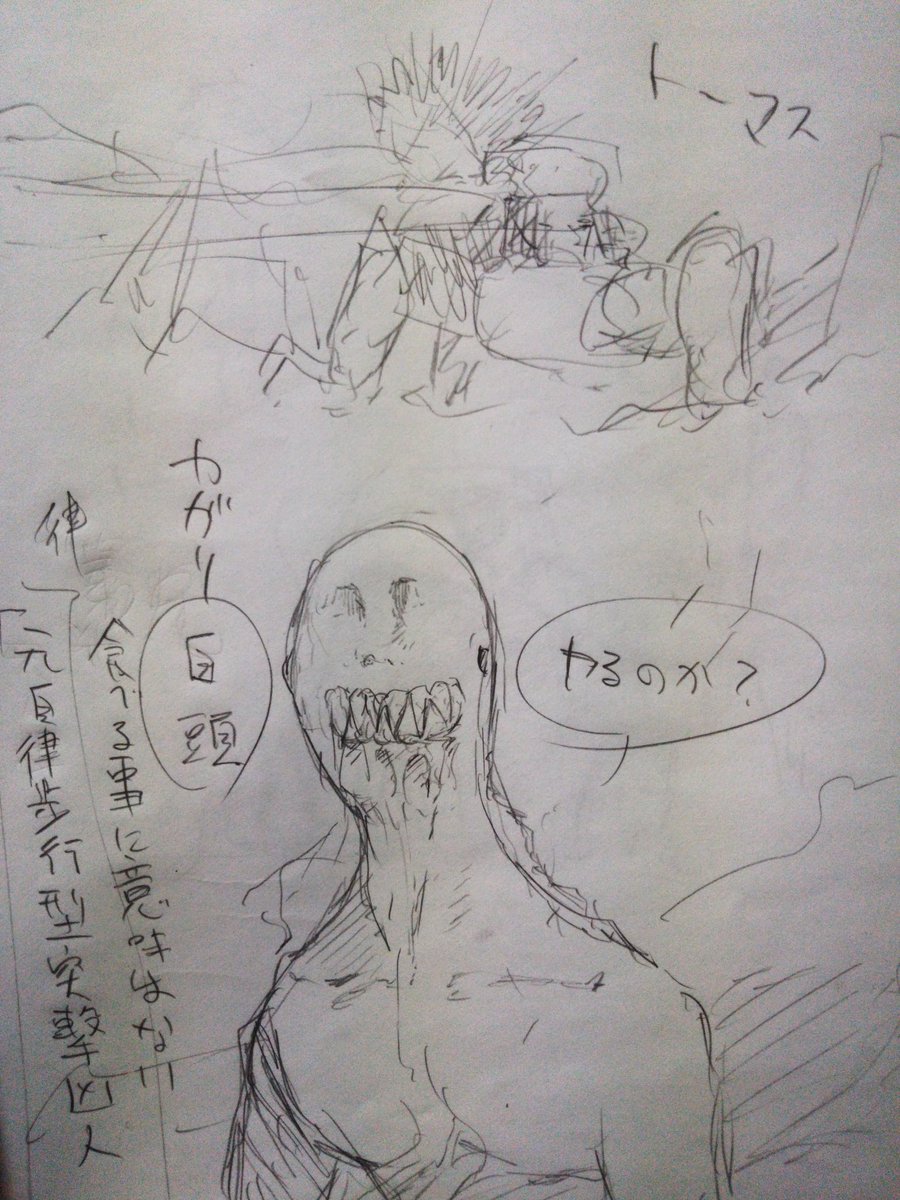 トーマス
やるのか?
カガリ
白頭
食べる事に意味はない
元自律歩行型突撃凶人
律